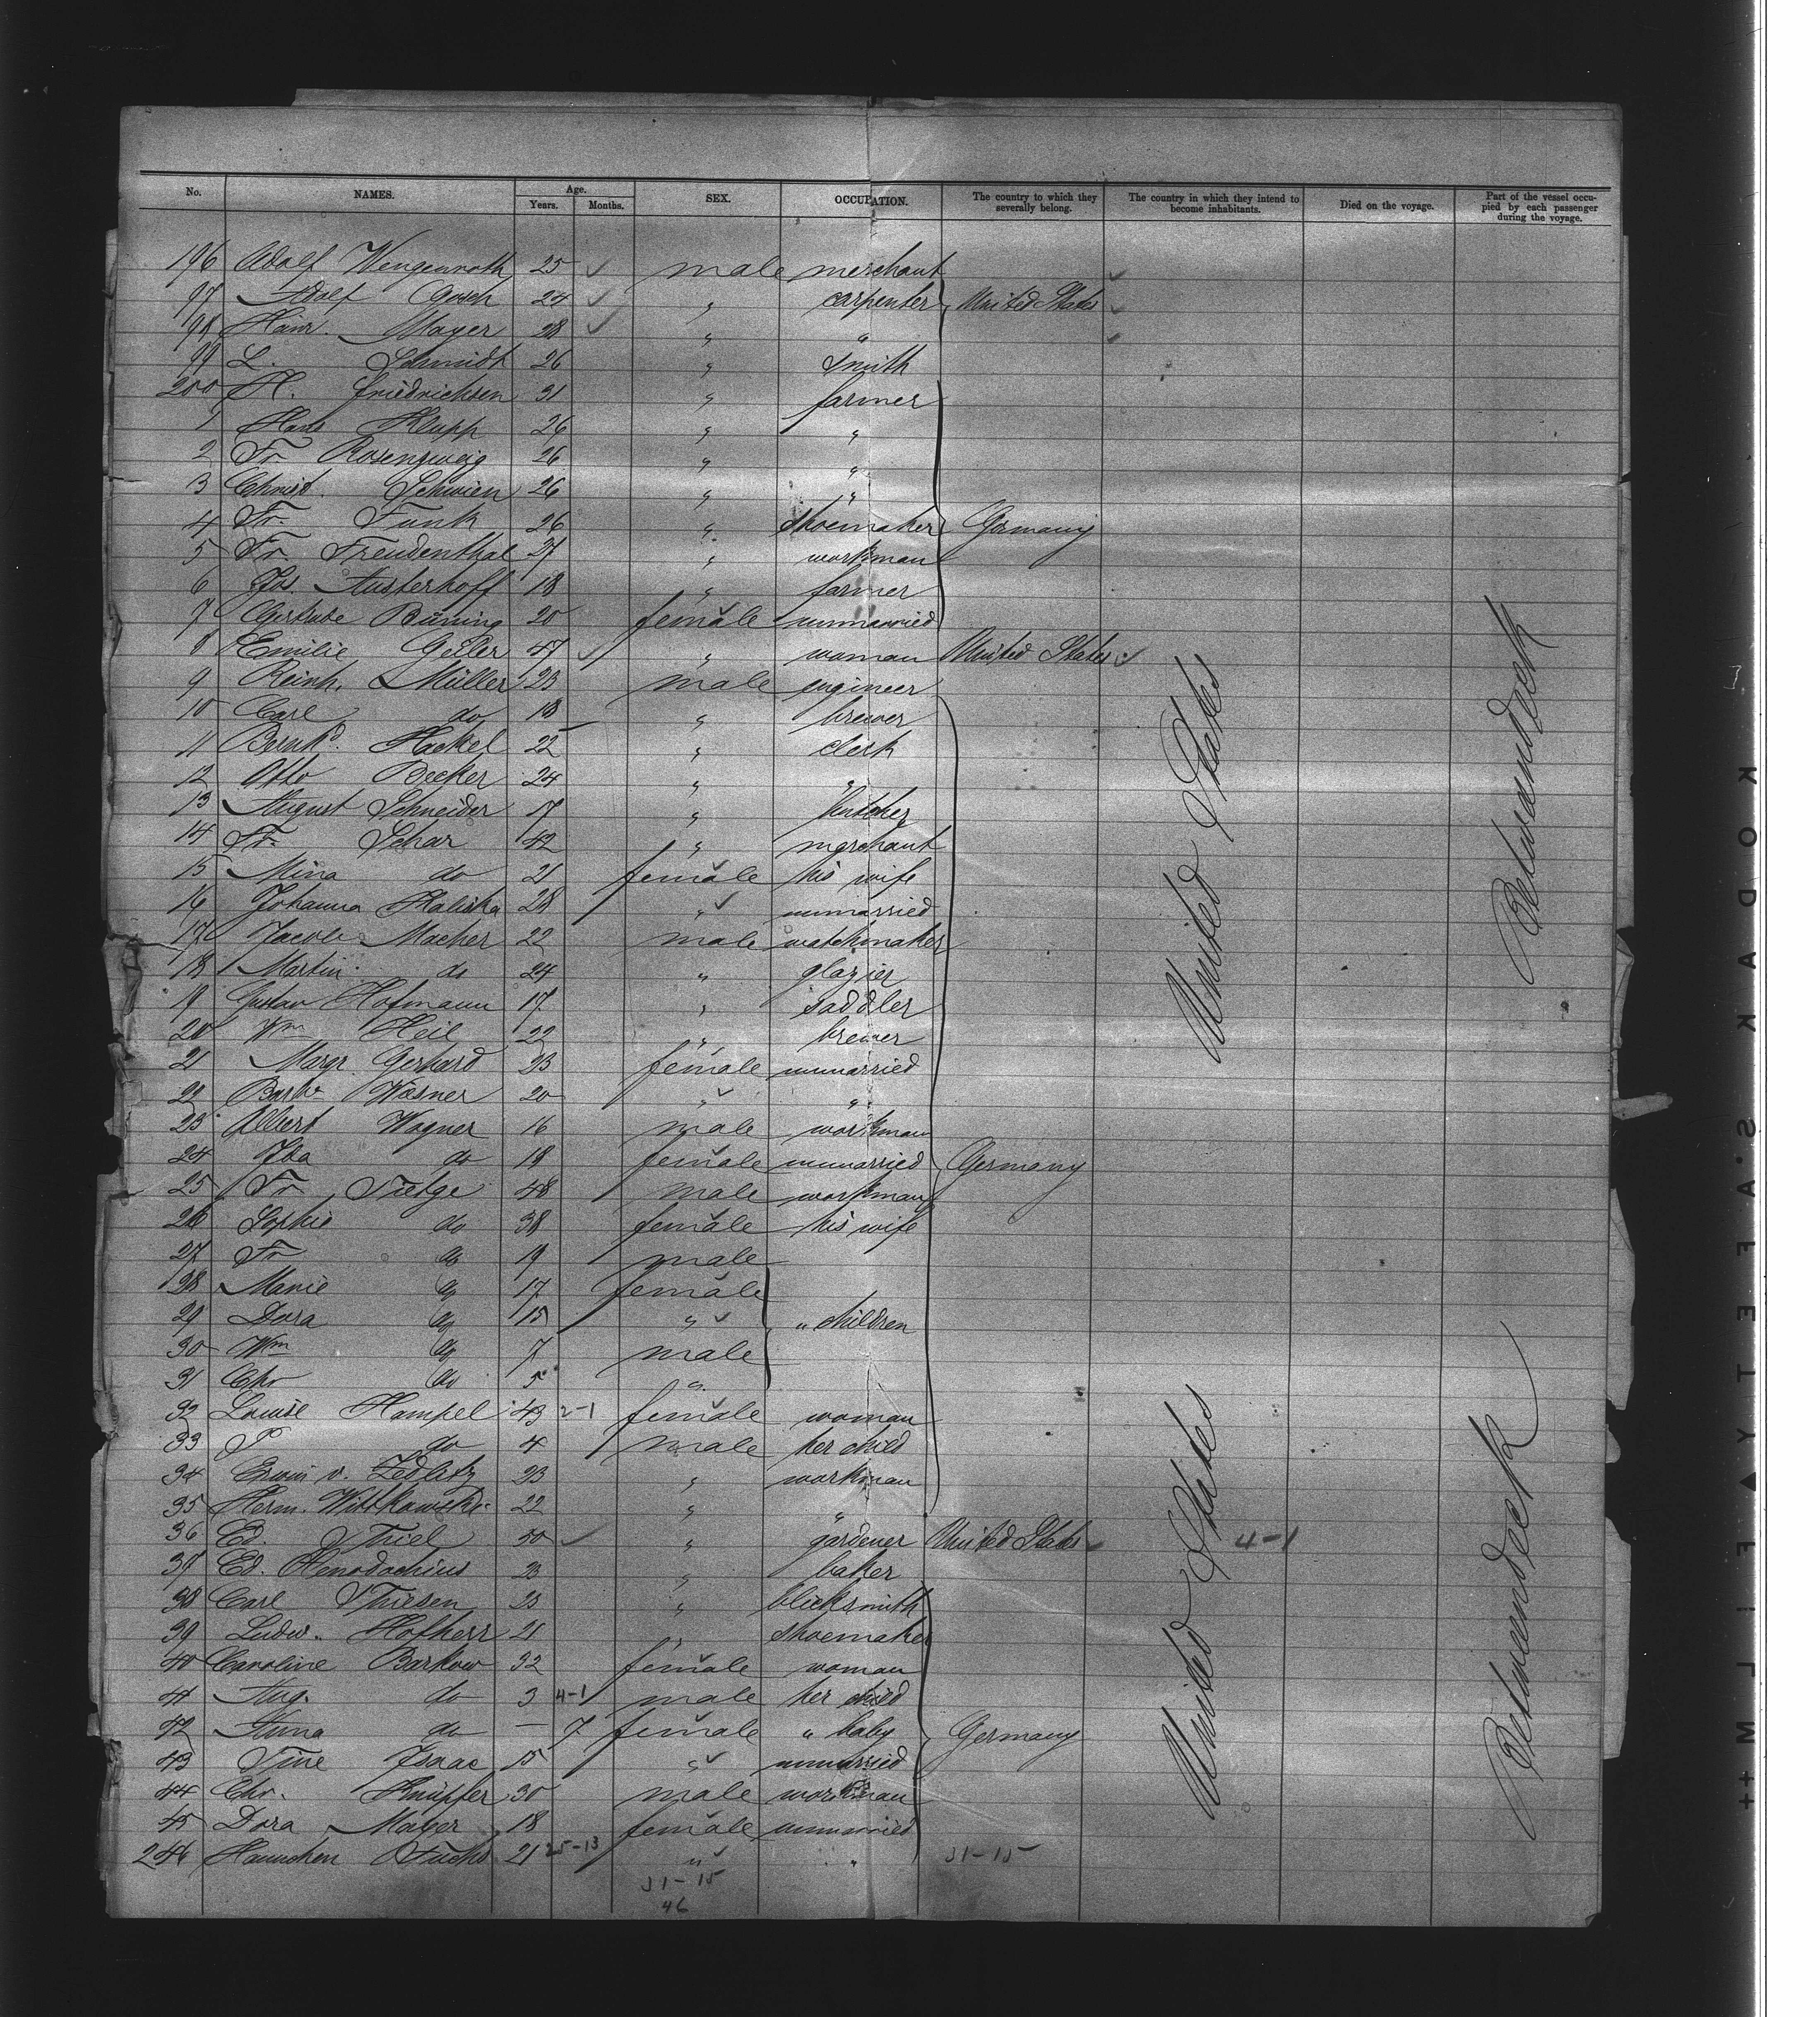 No. NAMES. Age. Years. Months. SEX. OCCUPATION. The country to which they severally belong. The country in which they intend to become inhabitants. Died on the voyage. Part of the vessel occupied by each passenger during the voyage.
196 Adolf Wengenroth 25 male merchant
97 Adolf Gosch 24 " carpenter United States
98 Heinr. Mayer 28 " "
99 L. Schmidt 26 " smith
200 H. Friedrichsen 31 " farmer
1 Hans Klupp 26 " "
2 Fr. Rosenzweig 26 " "
3 Christ. Schwien 26 " "
4 Fr. Funk 26 " shoemaker Germany
5 Fr. Freudenthal 27 " workman
6 Jos. Austerhoff 18 " farmer
7 Gertrude Büning 20 female unmarried
8 Emilie Geiler 47 " woman United States
9 Reinh. Müller 23 male engineer
10 Carl do 18 " brewer
11 Bernhd. Hackel 22 " clerk
12 Otto Becker 24 " "
13 August Schneider 17 " butcher
14 Fr. Schar 42 " merchant
15 Mina do 21 female his wife
16 Johanna Kaliska 28 " unmarried
17 Jacob Macher 22 male watchmaker
18 Martin do 24 " glazier
19 Gustav Hofmann 17 " saddler
20 Wm Heil 22 " brewer
21 Margr. Gerhard 23 female unmarried
22 Barba Wesner 20 " "
23 Albert Wagner 16 male workman
24 Ida do 18 female unmarried Germany
25 Fr. Tietge 48 male workman
26 Sophie do 38 female his wife
27 Fr. do 19 male
28 Marie do 17 female
29 Dora do 15 " " children
30 Wm do 7 male
31 Chr do 5 "
32 Louise Hampel 43 2-1 female woman
33 P do 4 male her child
34 Erwin v. Zedlitz 23 " workman
35 Herm. Wittkowski 22 " "
36 Ed. Thiel 50 " gardener United States 4-1
37 Ed. 23 " baker
38 Carl Thiesen 23 " blicksmith
39 Ludw. Hofherr 21 " shoemaker
40 Caroline Barkow 32 female woman
41 Aug. do 3 4-1 male her child
42 Anna do — 7 female " baby Germany
43 Tine Isaac 15 " unmarried
44 Chr. Knüpfer 30 male workman
45 Dora Mayer 18 female unmarried
246 Hannchen Fuchs 21 25-13 " " 31-15
31-15
46
United States
Betweendeck
United States
Betweendeck
KODAK S.AFETY ▲ FILM ++